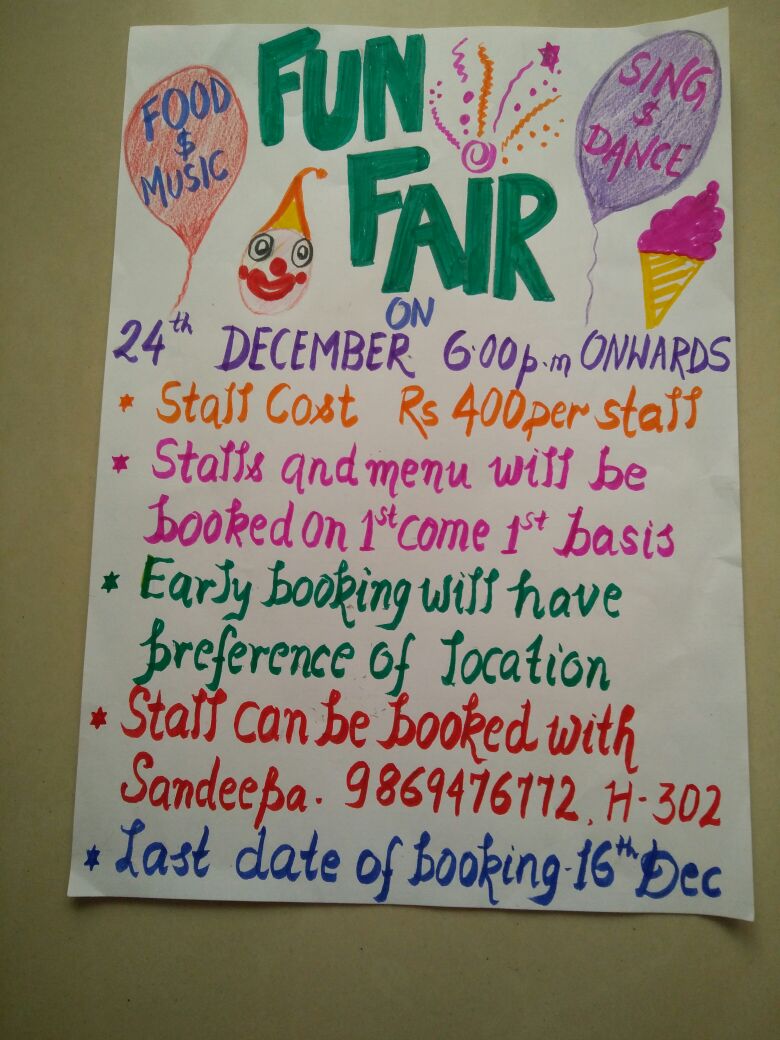 FOOD
$
MUSIC
FUN
FAIR
SING
$
DANCE
ON
24th DECEMBER 6.00p.m ONWARDS
* Stall Cost Rs 400 per stall
* Stalls and menu will be
booked on 1st come 1st basis
* Early booking will have
preference of location
* Stall can be booked with
Sandeepa. 9869476772, H-302
* Last date of booking-16th Dec